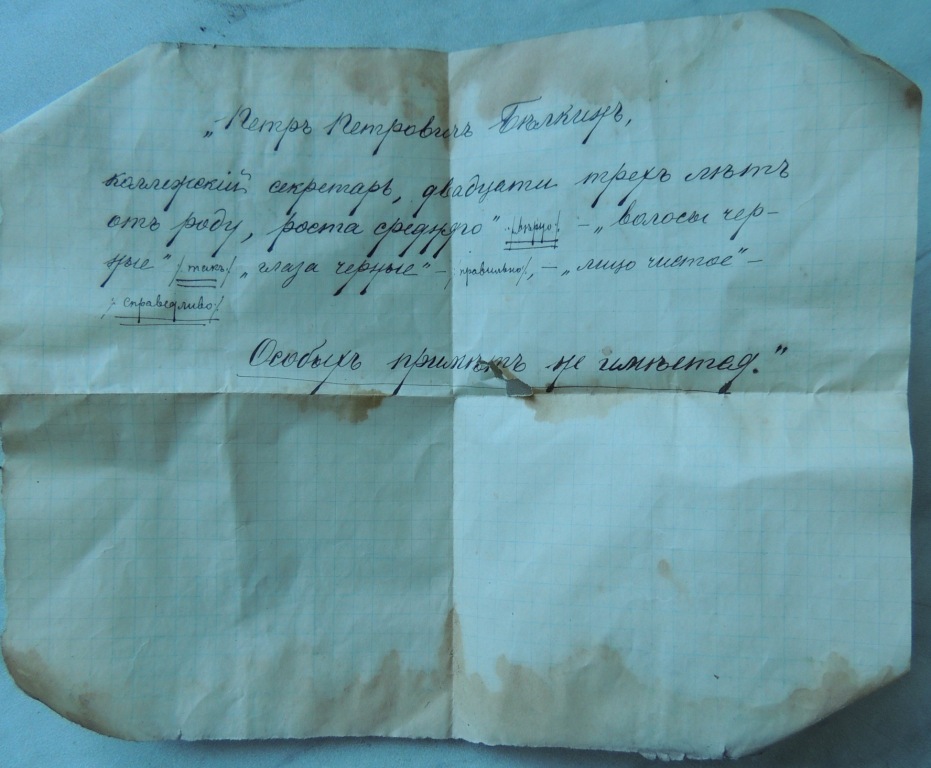 „Петръ Петровичъ Бѣлкинъ,
коллежскій секретарь, двадцати трехъ лѣтъ
отъ роду, роста средняго" /:вѣрно:/ – „волосы чер-
ные" /:такъ:/ „глаза черные" – /правильно/, – „лицо чистое" –
/:справедливо:/
Особыхъ примѣтъ не имѣется."